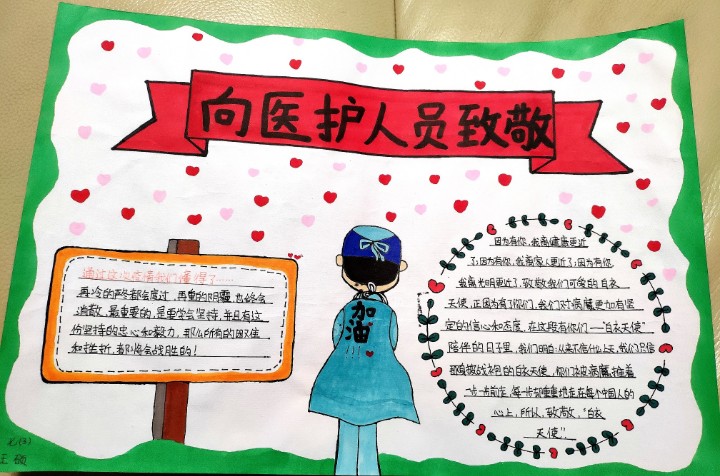 向医护人员致敬
通过这次疫情我们懂得了
再冷的严冬都会度过，再重的阴霾，也终会
消散，最重要的，是要学会坚持，并且有这
份坚持的忠心和毅力，那么所有的困难
和挫折，都将会战胜的！
加油
!!!
因为有你，我离健康更近
了；因为有你，我离家人更近了；因为有你，
我离光明更近了，致敬我们可爱的白衣
天使，正因为有了你们，我们对病魔更加有坚
定的信心和态度，在这段有你们——"白衣天使"
陪伴的日子里，我们明白：从来不信什么上天，我们只信
白衣天使，你们
一步一步前往，每一步都重重地走在每个中国人的
心上，所以，致敬，"白衣
天使"。
七(3)
王硕